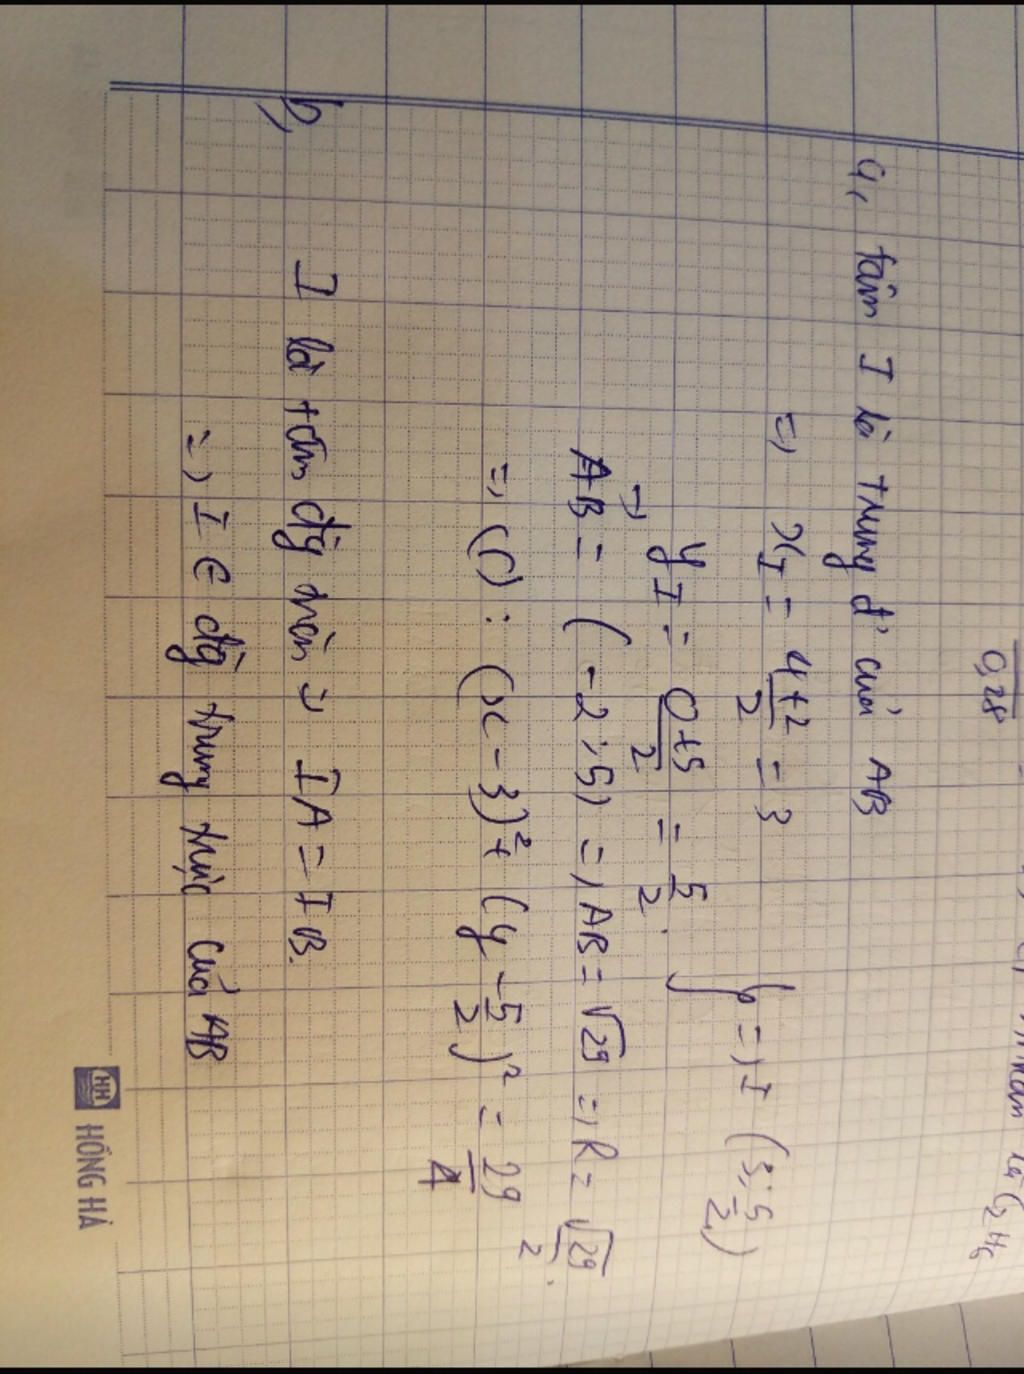 0,28
a, tâm I là trung đ' của AB
=> x_I = (4+2)/2 = 3
y_I = (0+5)/2 = 5/2 } => I (3; 5/2)
AB = (-2; 5) => AB = √29 => R = √29/2.
=> (C): (x - 3)² + (y - 5/2)² = 29/4
b, I là tâm đg tròn => IA = IB.
=> I ∈ đg trung trực của AB
HH HỒNG HÀ